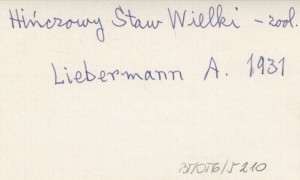 Hińczowy Staw Wielki - zool.
Liebermann A. 1931